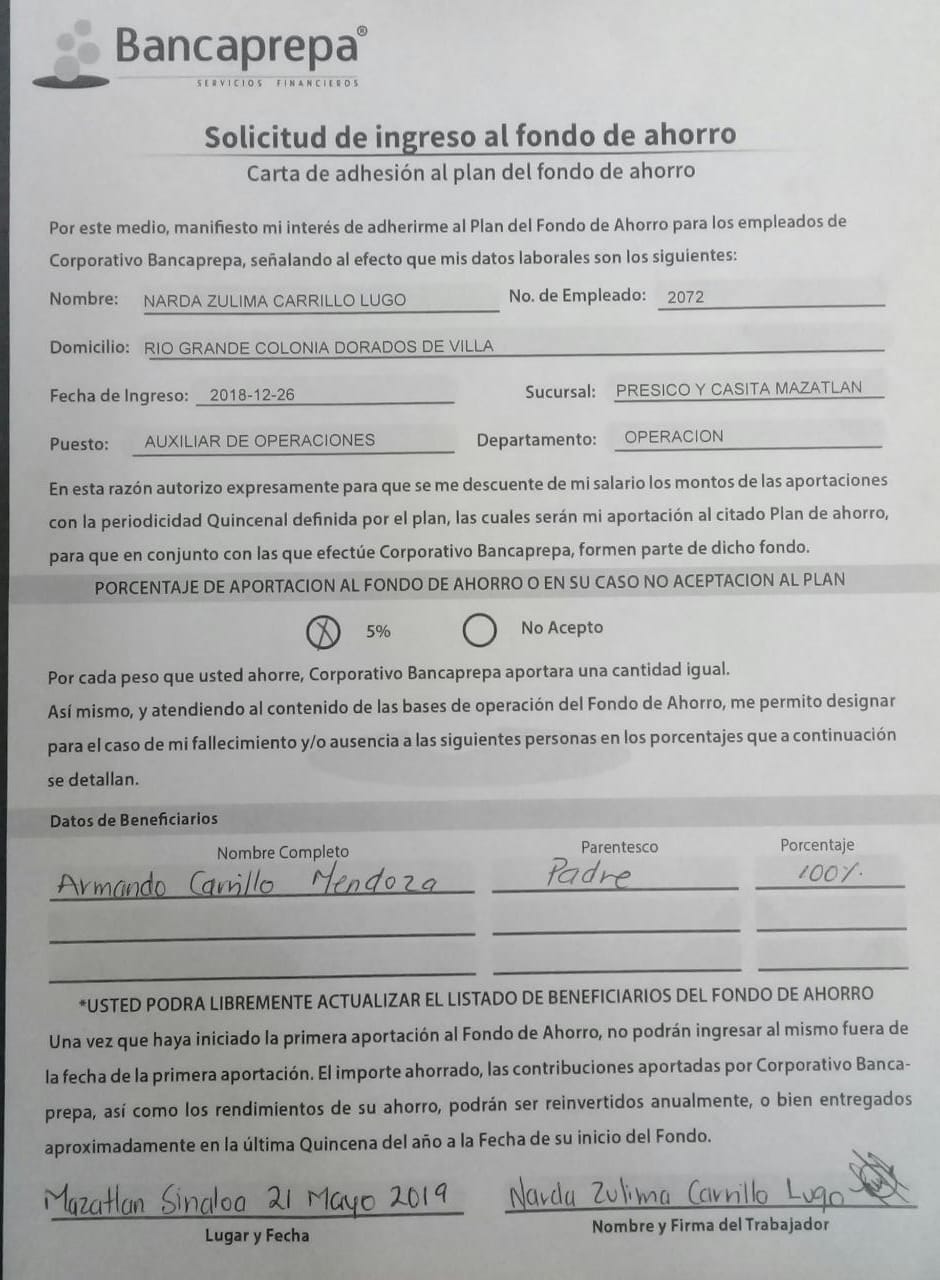 Bancaprepa®
SERVICIOS FINANCIEROS
Solicitud de ingreso al fondo de ahorro
Carta de adhesión al plan del fondo de ahorro
Por este medio, manifiesto mi interés de adherirme al Plan del Fondo de Ahorro para los empleados de
Corporativo Bancaprepa, señalando al efecto que mis datos laborales son los siguientes:
Nombre: NARDA ZULIMA CARRILLO LUGO No. de Empleado: 2072
Domicilio: RIO GRANDE COLONIA DORADOS DE VILLA
Fecha de Ingreso: 2018-12-26 Sucursal: PRESICO Y CASITA MAZATLAN
Puesto: AUXILIAR DE OPERACIONES Departamento: OPERACION
En esta razón autorizo expresamente para que se me descuente de mi salario los montos de las aportaciones
con la periodicidad Quincenal definida por el plan, las cuales serán mi aportación al citado Plan de ahorro,
para que en conjunto con las que efectúe Corporativo Bancaprepa, formen parte de dicho fondo.
PORCENTAJE DE APORTACION AL FONDO DE AHORRO O EN SU CASO NO ACEPTACION AL PLAN
X 5% No Acepto
Por cada peso que usted ahorre, Corporativo Bancaprepa aportara una cantidad igual.
Así mismo, y atendiendo al contenido de las bases de operación del Fondo de Ahorro, me permito designar
para el caso de mi fallecimiento y/o ausencia a las siguientes personas en los porcentajes que a continuación
se detallan.
Datos de Beneficiarios
Nombre Completo Parentesco Porcentaje
Armando Carrillo Mendoza Padre 100%
*USTED PODRA LIBREMENTE ACTUALIZAR EL LISTADO DE BENEFICIARIOS DEL FONDO DE AHORRO
Una vez que haya iniciado la primera aportación al Fondo de Ahorro, no podrán ingresar al mismo fuera de
la fecha de la primera aportación. El importe ahorrado, las contribuciones aportadas por Corporativo Banca-
prepa, así como los rendimientos de su ahorro, podrán ser reinvertidos anualmente, o bien entregados
aproximadamente en la última Quincena del año a la Fecha de su inicio del Fondo.
Mazatlan Sinaloa 21 Mayo 2019 Narda Zulima Carrillo Lugo
Lugar y Fecha Nombre y Firma del Trabajador